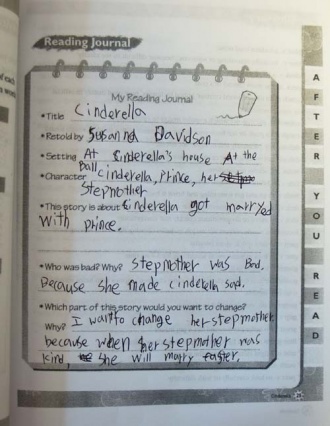 Reading Journal
My Reading Journal
•Title Cinderella
•Retold by Susanna Davidson
•Setting At Cinderella's house At the
ball
•Character Cinderella, Prince, her
Stepmother
•This story is about Cinderella got marryed
With prince.
•Who was bad? Why? Stepmother was Bad,
Because she made cinderella sad.
•Which part of this story would you want to change?
Why? I want to change her stepmother
because when her stepmother was
kind, she will marry faster.
AFTER YOU READ